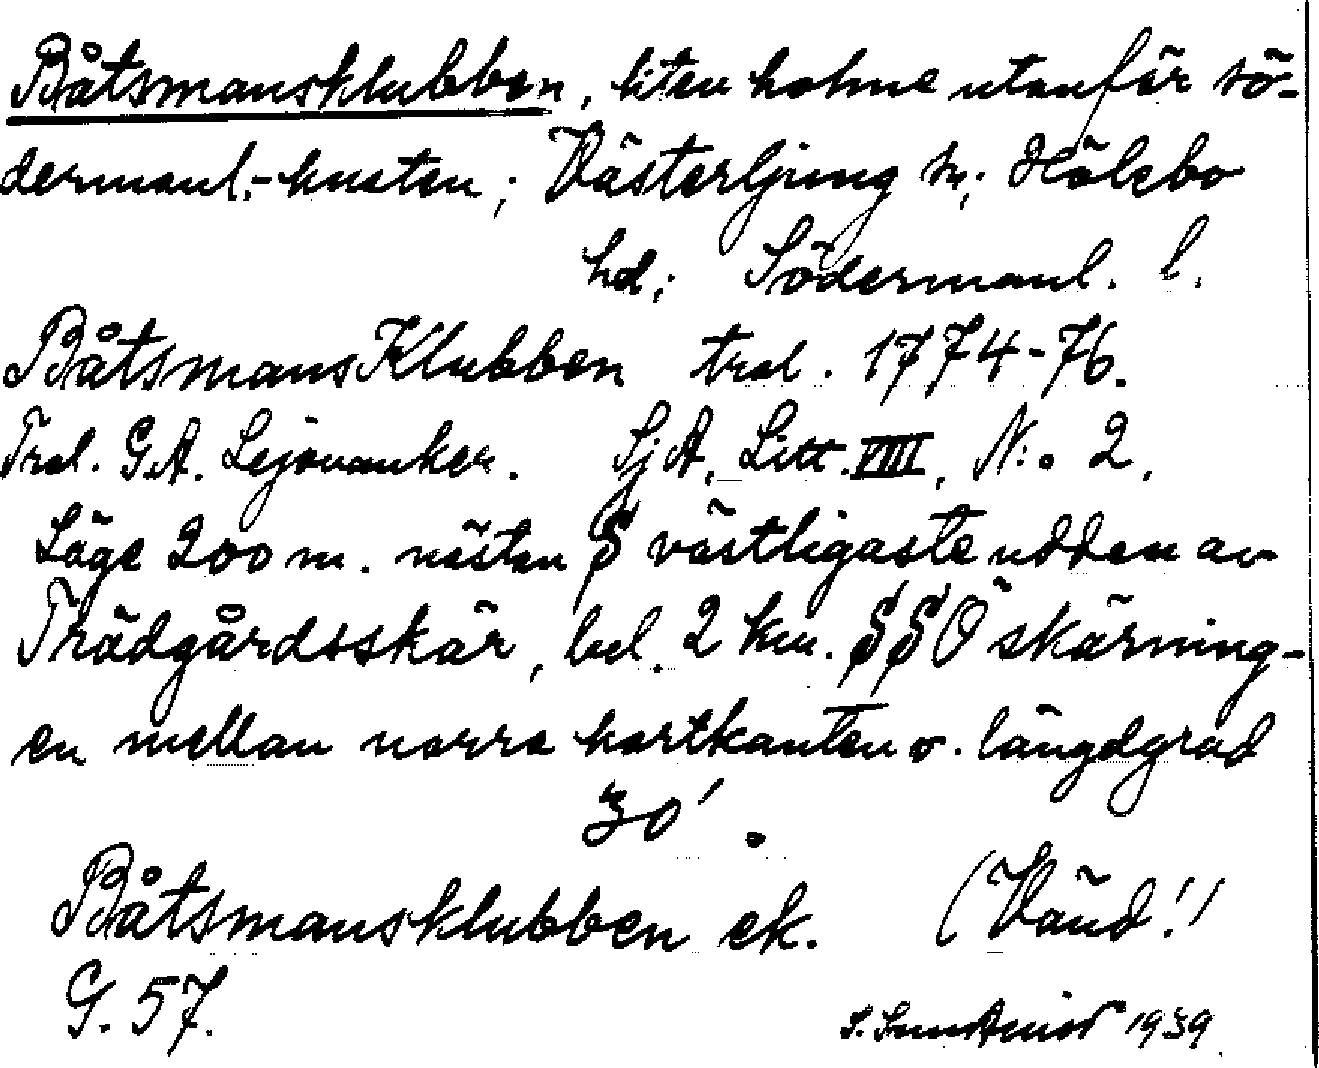 Båtsmansklubben, liten holme utanför sö-
dermanl.-kusten; Västerljung sn; Hölebo
hd; Södermanl. l.
BåtsmansKlubben tral. 1774-76.
Tral. G.A. Lejonanker. SjA, Litt. VIIII, N:o 2.
Läge 200 m. nästan S västligaste udden av
Trädgårdsskär, bel. 2 km. SSÖ skärning-
en mellan norra kartkanten o. längdgrad
30'.
Båtsmansklubben ek. (Vänd!)
G. 57.
1939